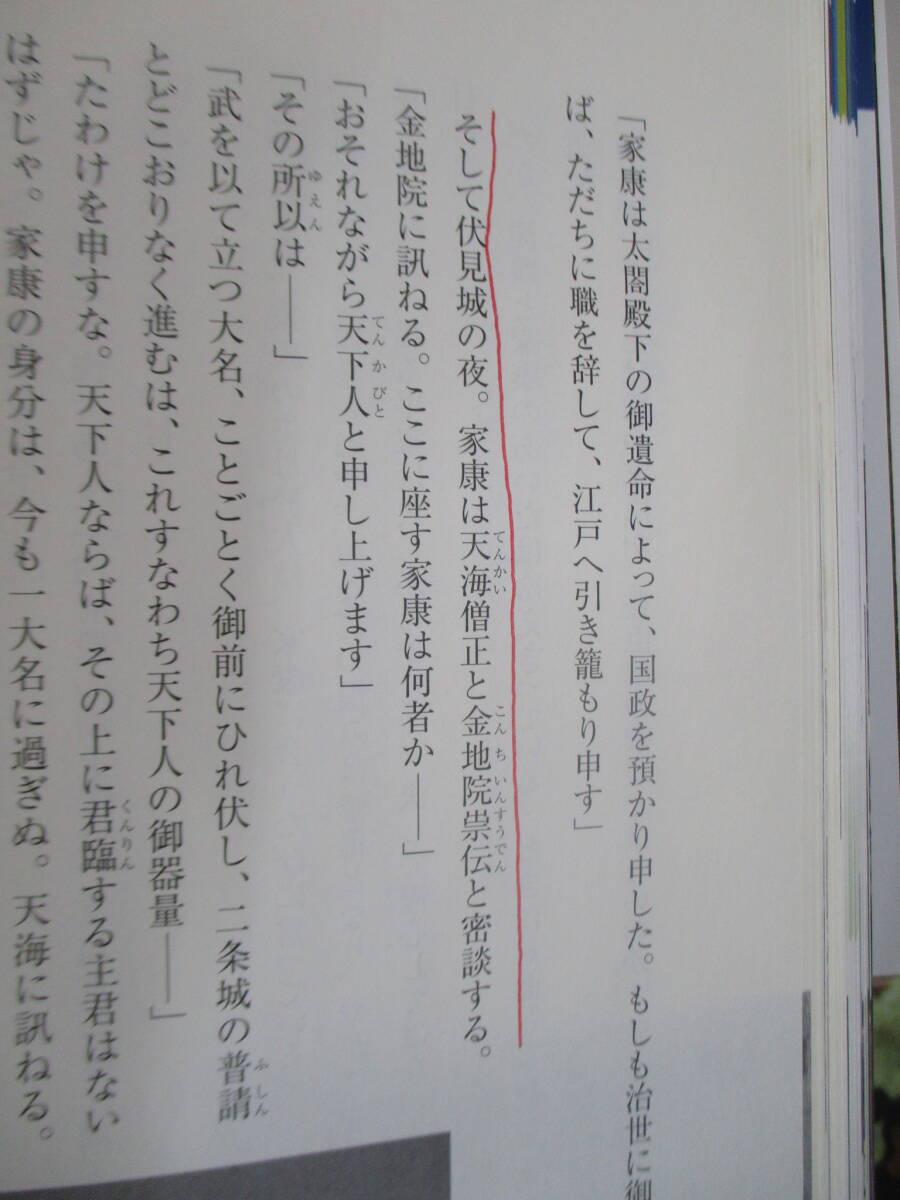 「家康は太閤殿下の御遺命によって、国政を預かり申した。もしも治世に御
ば、ただちに職を辞して、江戸へ引き籠もり申す」
そして伏見城の夜。家康は天海僧正と金地院崇伝と密談する。
「金地院に訊ねる。ここに座す家康は何者か――」
「おそれながら天下人と申し上げます」
「その所以は――」
「武を以て立つ大名、ことごとく御前にひれ伏し、二条城の普請
とどこおりなく進むは、これすなわち天下人の御器量――」
「たわけを申すな。天下人ならば、その上に君臨する主君はない
はずじゃ。家康の身分は、今も一大名に過ぎぬ。天海に訊ねる。